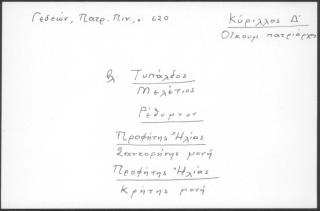 Γεδεών, Πατρ. Πιν., σ. 620
Κύριλλος Δ'
Οἰκουμ. πατριάρχης
βλ. Τυπάλδος
Μελέτιος
Ρέθυμνον
Προφήτης Ἠλίας
Σαντορίνης μονή
Προφήτης Ἠλίας
Κρήτης μονή